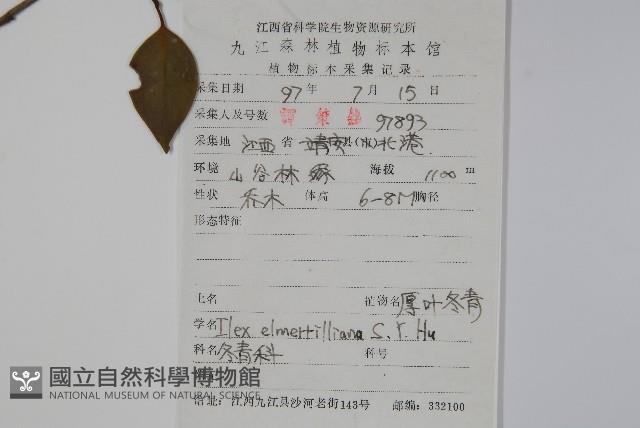 江西省科学院生物资源研究所
九江森林植物标本馆
植物标本采集记录
采集日期 97年 7月 15日
采集人及号数 97893
采集地 江西省 靖安县(市)北港
环境 山谷林缘 海拔 1100 m
性状 乔木 体高 6-8M 胸径
形态特征
土名 植物名 厚叶冬青
学名 Ilex elmerrilliana S.Y. Hu
科名 冬青科 科号
國立自然科學博物館
NATIONAL MUSEUM OF NATURAL SCIENCE
馆址:江西九江县沙河老街143号 邮编:332100